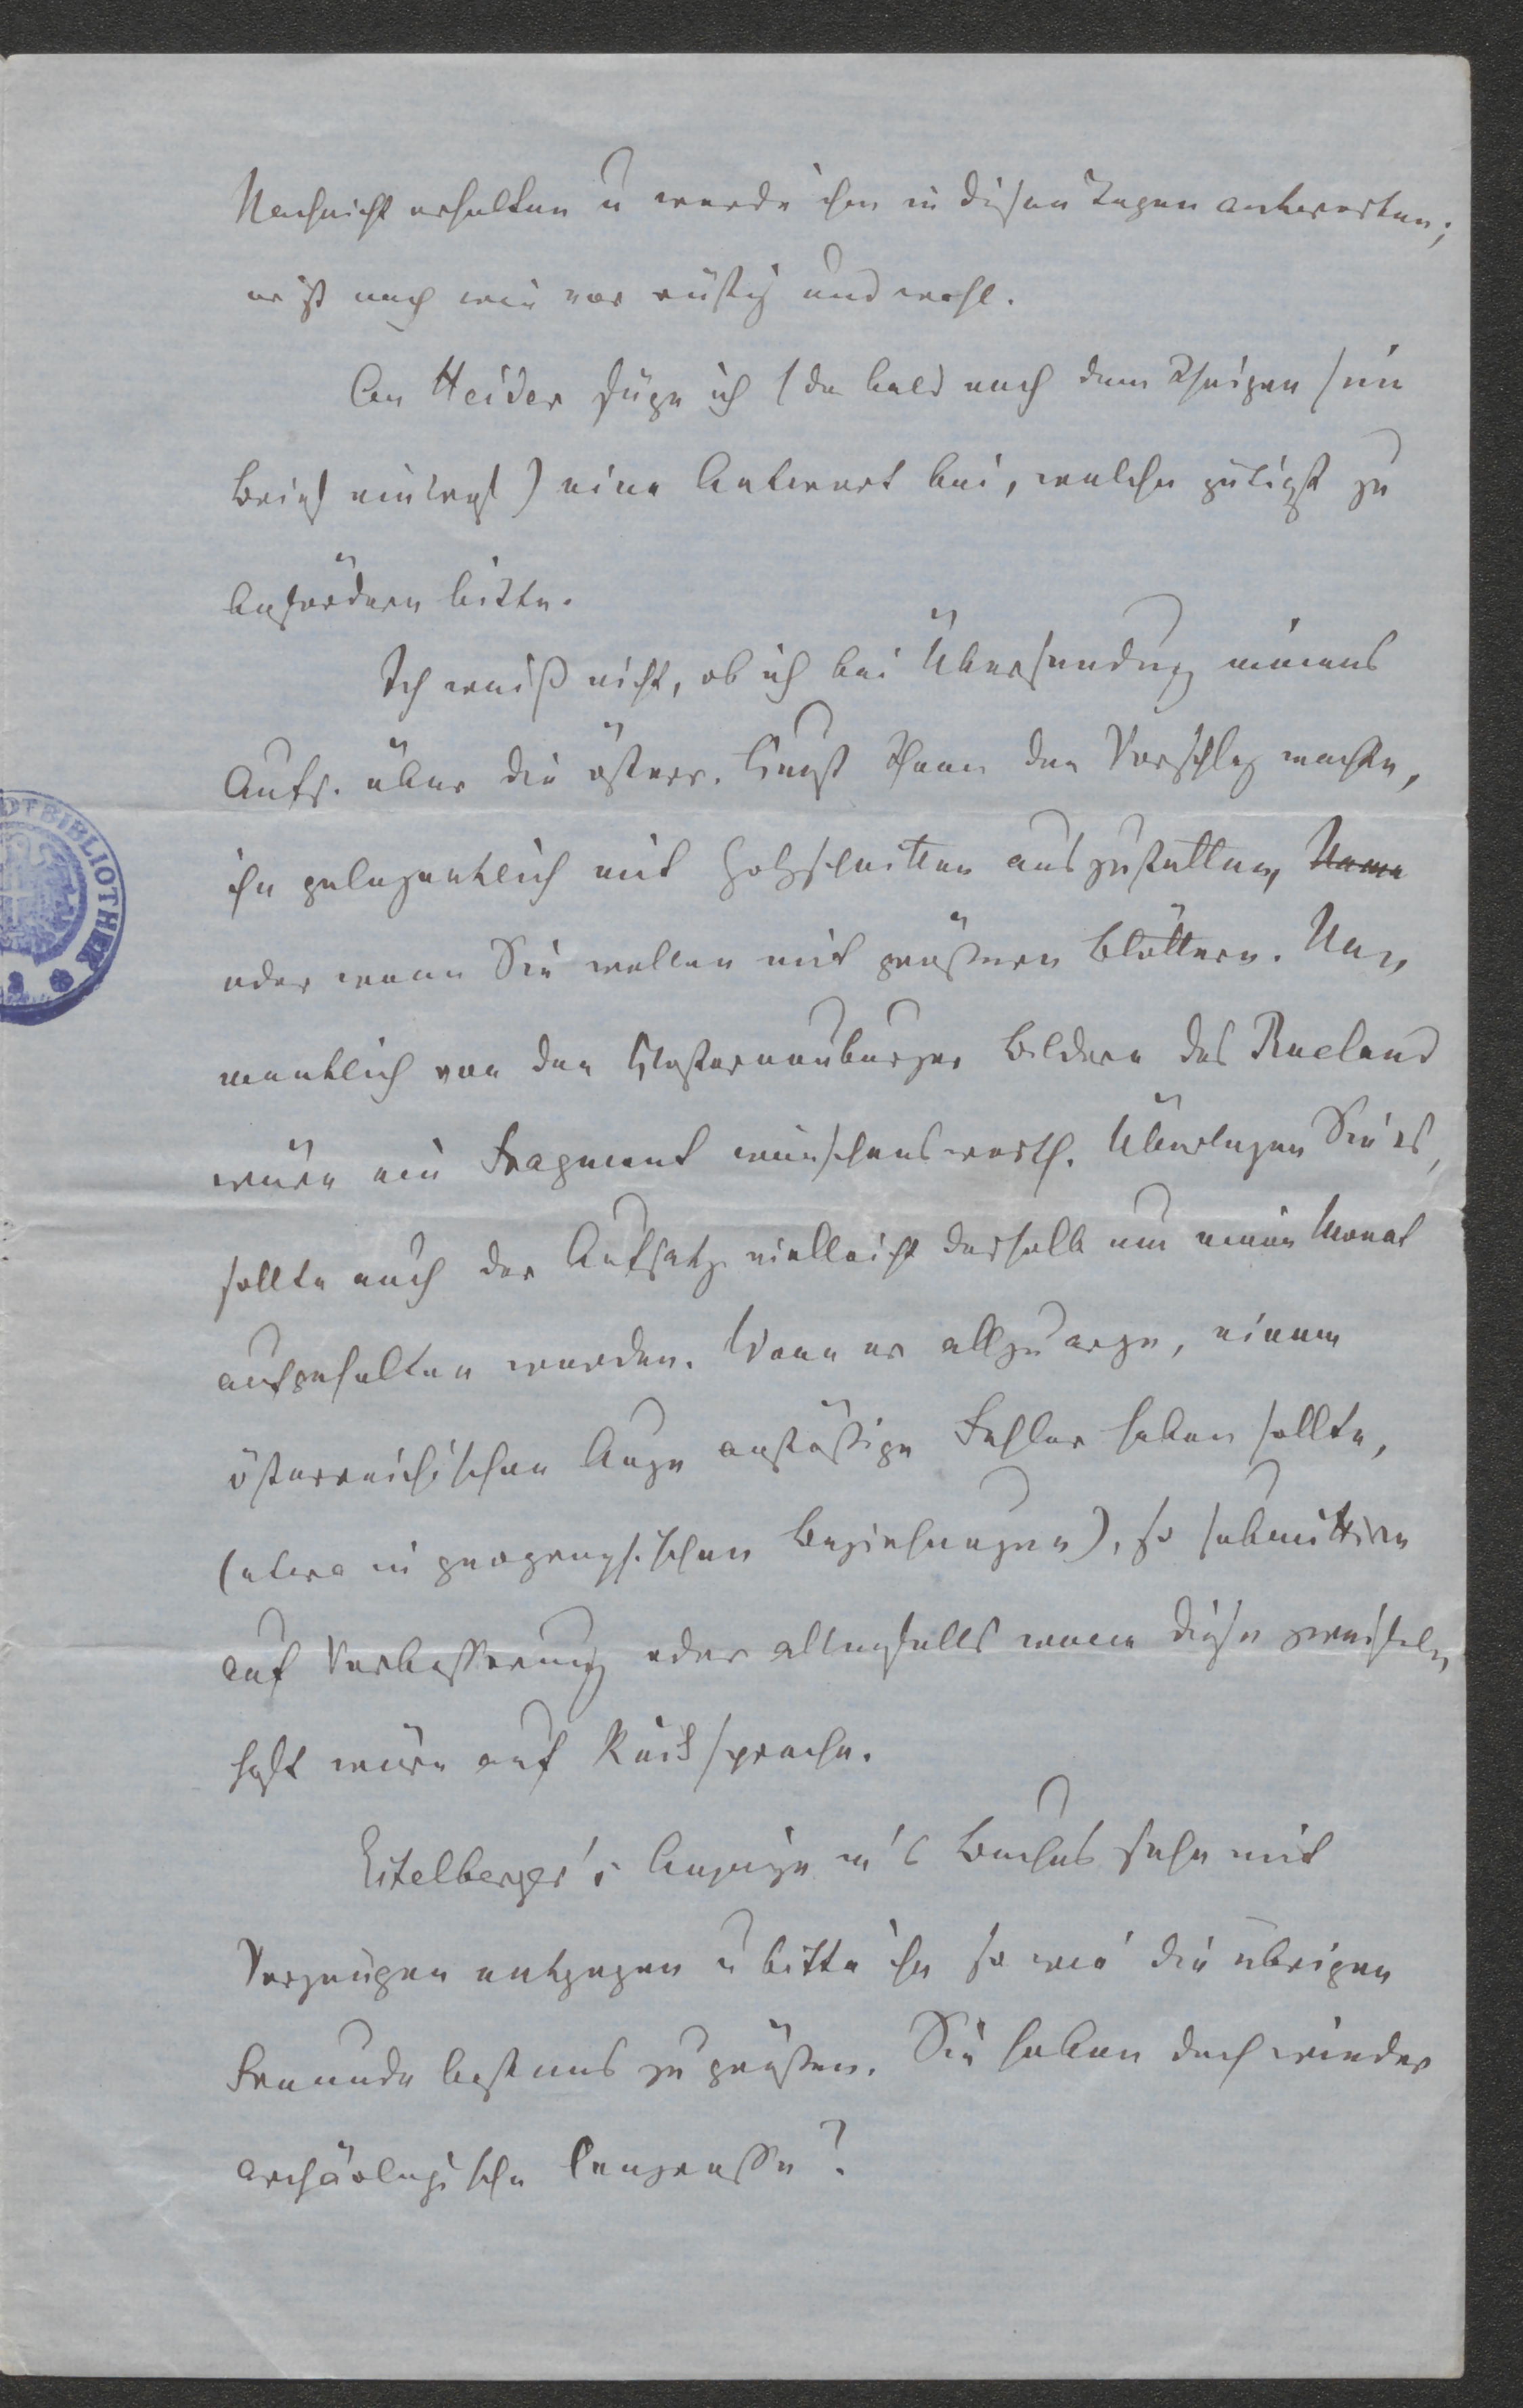 Nachricht erhalten u werde ihm in diesen Tagen antworten;
er ist nach wie vor rüstig und wohl.
An Heider füge ich (da bald nach dem Ihrigen sein
Brief eintraf) eine Antwort bei, welche gütigst zu
befördern bitte.
Ich weiß nicht, ob ich bei Übersendung meines
Aufs. über die österr. Kunst Ihnen den Vorschlag machte,
ihn gelegentlich mit Holzschnitten auszustatten,
oder wenn Sie wollen mit größern Blättern. Na-
mentlich von den Klosterneuburger Bildern des Rueland
wäre ein Fragment wünschenswerth. Überlegen Sie es,
sollte auch der Aufsatz vielleicht deshalb um einen Monat
aufgehalten werden. Wenn er allzu arge, einem
österreichischen Auge anstößige Fehler haben sollte,
(etwa in geographischen Beziehungen), so submittire
auf Verbesserung oder allenfalls wenn diese zweifel-
haft wäre auf Rücksprache.
Eitelberger's Anzeige m's Buches sehe mit
Vergnügen entgegen u bitte ihn so wie die übrigen
Freunde bestens zu grüßen. Sie haben doch wieder
archäologische Congresse?
STADTBIBLIOTHEK